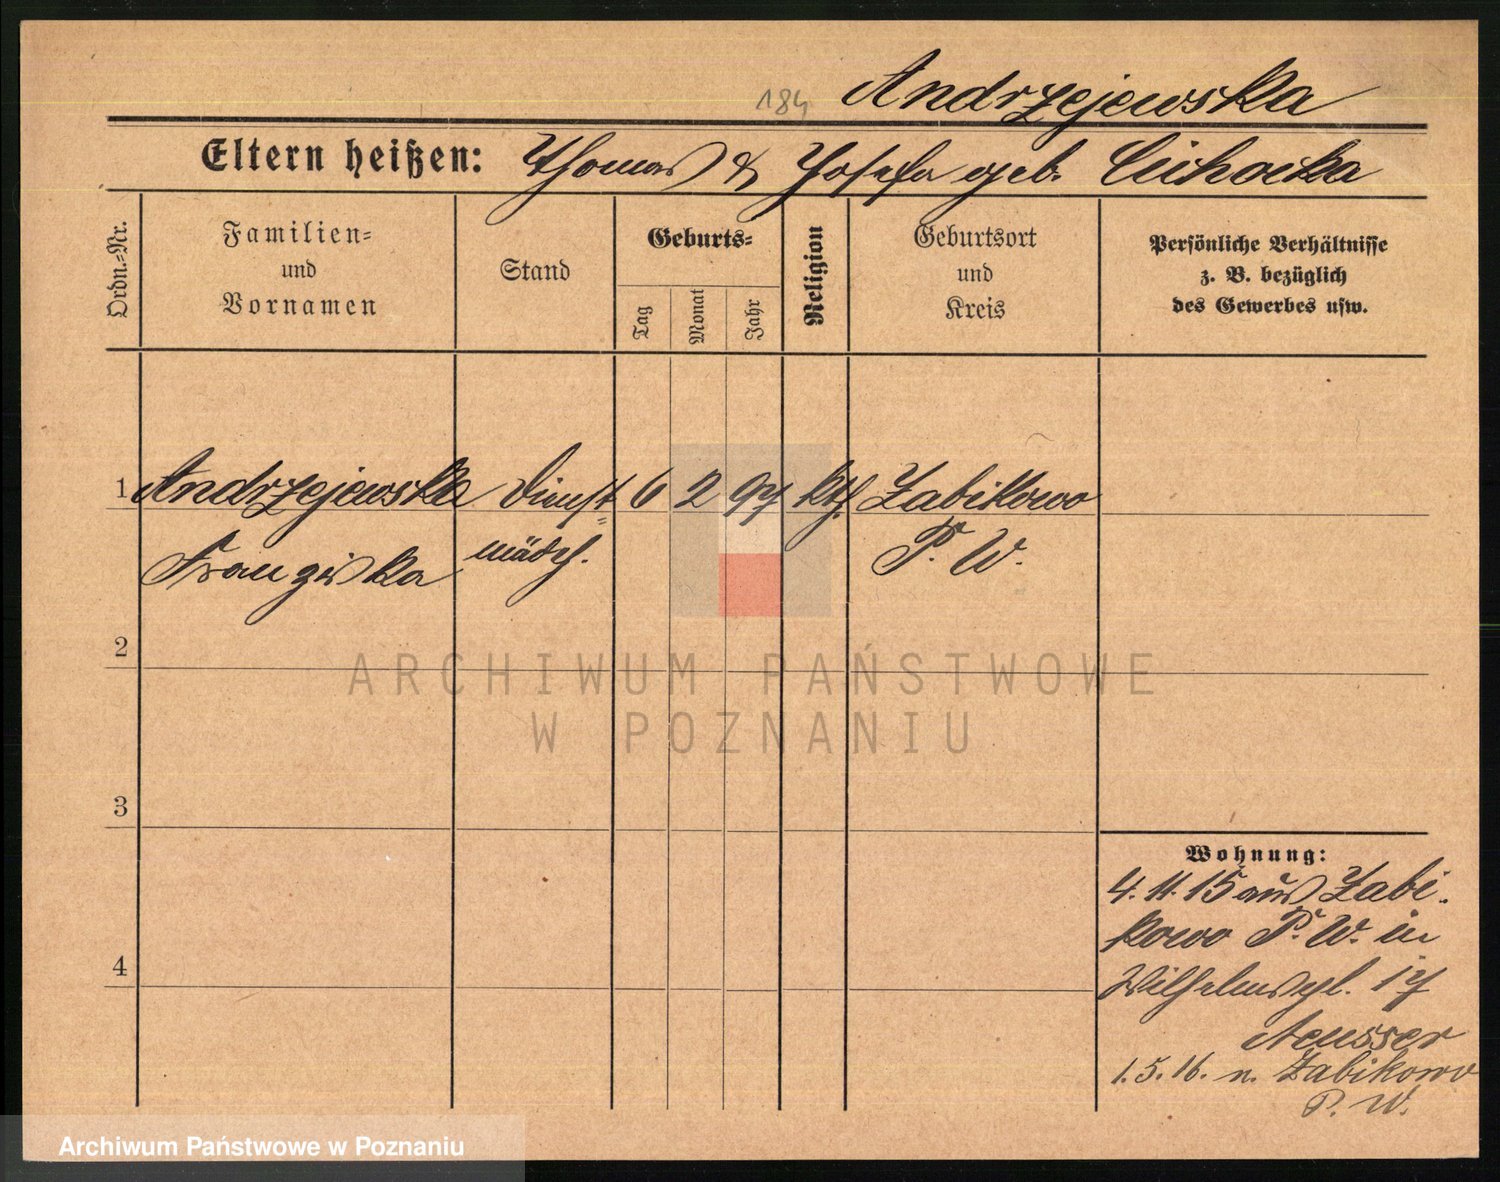 184 Andrzejewska
Eltern heißen: Thomas & Josefa geb. Cichocka
Ordn.-Nr.
Familien-
und
Vornamen
Stand
Geburts-
Tag
Monat
Jahr
Religion
Geburtsort
und
Kreis
Persönliche Verhältnisse
z. B. bezüglich
des Gewerbes usw.
1 Andrzejewska Dienst= 6 2 97 kth. Zabikowo
Franziska mädch. P. W.
2
3
4
Wohnung:
4. 11. 15 aus Zabi-
kowo P. W. in
Wilhelmspl. 17
Aeusser
1. 5. 16. n. Zabikowo
P. W.
ARCHIWUM PAŃSTWOWE
W POZNANIU
Archiwum Państwowe w Poznaniu